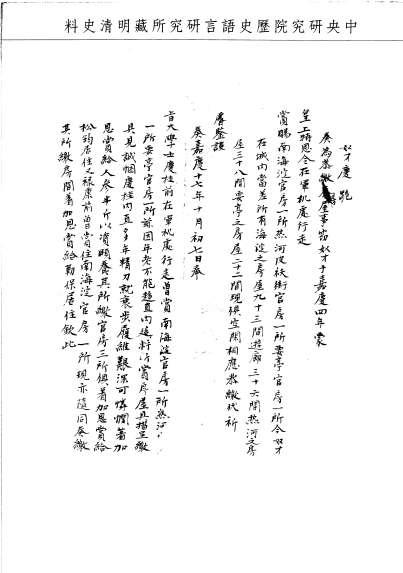 中央研究院歷史語言研究所藏明清史料
奴才慶 跪
奏為恭繳 屋事竊奴才于嘉慶四年蒙
皇上格恩令在軍机處行走
賞賜南海淀官房一所熱河皮袄街官房一所要亭官房一所今奴才
在城内當差所有海淀之房屋九十三間遊廊三十六間熱河之房
屋三十八間要亭之房屋二十二間現俱空閑相應恭繳伏祈
睿鑒謹
奏嘉慶十七年十月初七日奉
旨大學士慶桂前在軍机處行走曾賞南海淀官房一所熱河
一所要亭官房一所茲因年老不能趨直内廷將所賞房屋具摺呈繳
具見誠悃慶桂内直多年精力就衰步履維艱深可憐憫著加
恩賞給人參半斤以資頤養其所繳官房三所俱著加恩賞給
松筠居住又祿康前曾賞住南海淀官房一所現亦隨同奏繳
其所繳房間著加恩賞給勒保居住欽此